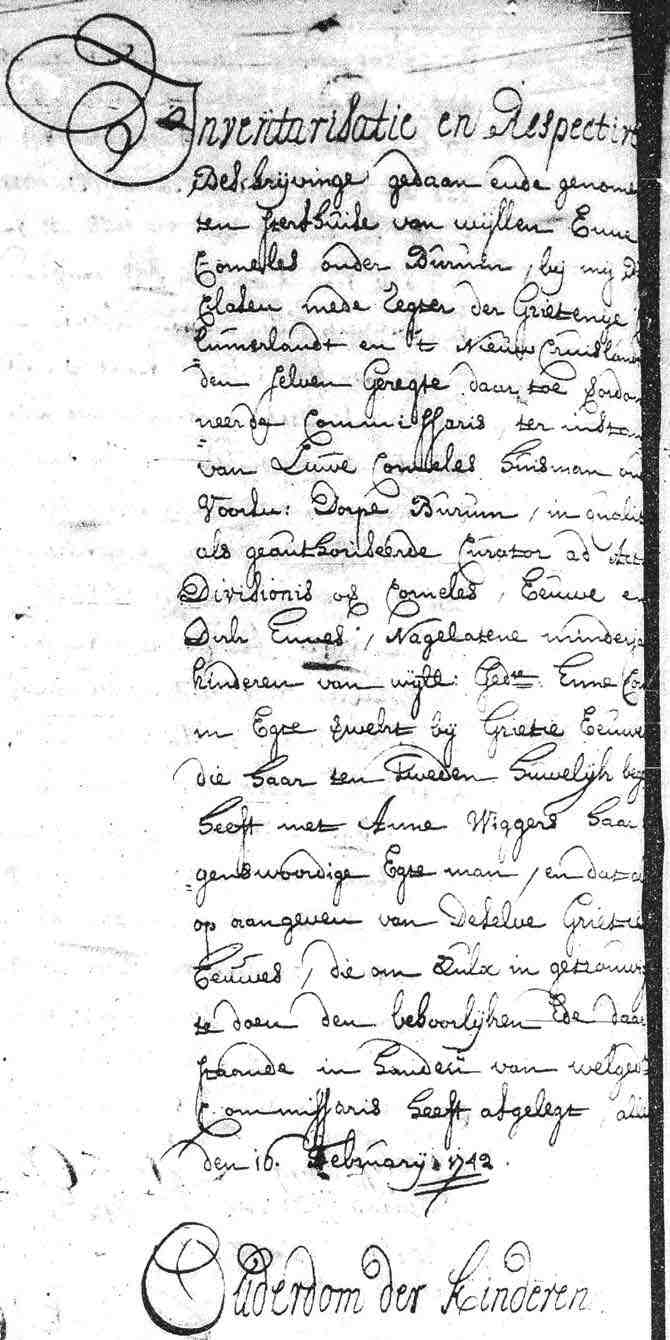 Inventarisatie en Respective
Beschrijvinge gedaan ende genome
ten sterfhuise van wijllen Enne
Corneles onder Burum, bij mij D
Clasen mede regter der Grietenije
Cumerlandt en 't Nieuw Cruisland
den selven Geregte daar toe geordon
neerde Commissaris, ter instan
van Luwe Corneles Huisman on
Voorsn: Dorpe Burum, in qualit
als geauthoriseerde Curator ad Act
Divisionis os Corneles, Eeuwe en
Dirk Ennes, Nagelatene minderja
kinderen van wijll: Gedte Enne Cor
in Egte verwekt bij Grietie Eeuwe
die haar ten Tweden Huwelijk beg
heeft met Anne Wiggers haar
genswoordige Egte man, en dat a
op aangeven van Deselve Grietie
Eeuwes, die om sulx in getrouwig
te doen den behoorlijken Ede daar
staande in handen van welged
Commissaris heeft afgelegt,
den 16. February 1742.
Ouderdom der Kinderen